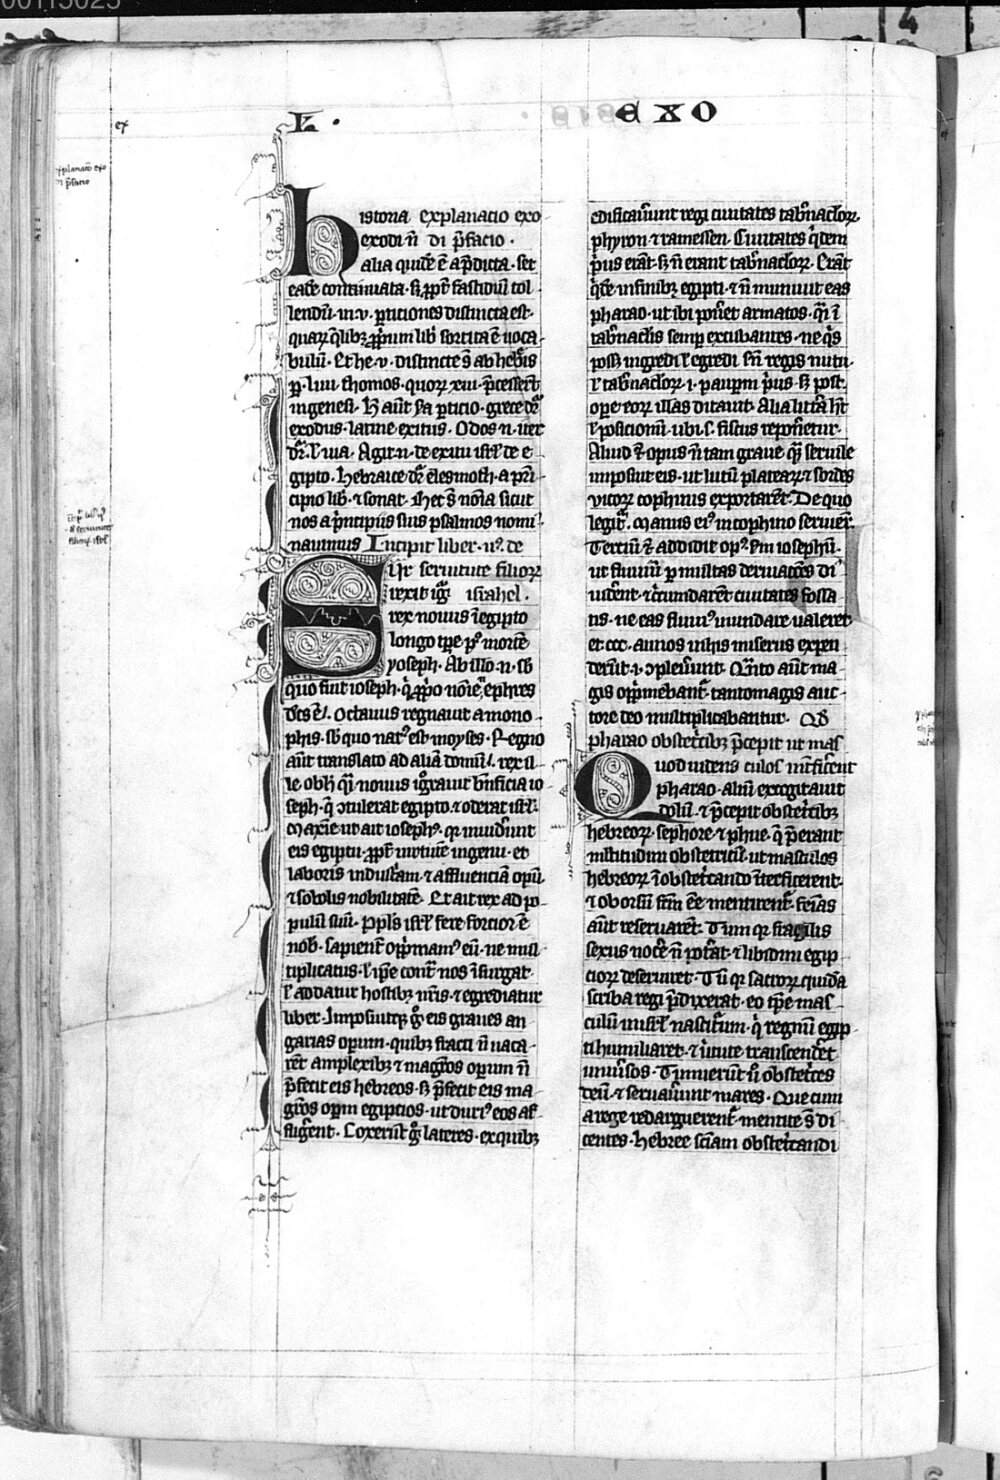 00113025
4
L . EXO
ex
explanatio exo
historia explanacio exo
exodi n̄ di p̄facio .
alia quidē ē a p̄dicta . set
eadē continuata . s; ꝓpt̄ fastidiū tol
lendū . in . v . ꝑticiones distincta est .
quaꝝ q̄libꝫ ꝓprium libri sortita ē uoca
bulū . Et he . v . distincte s̄ ab heb̄is
ꝑ . liiii . thomos . quoꝝ xiii . p̄cesserūt
in genesi . H̄ aut̄ sā ꝑticio . grece d̄r
exodus . latine exitus . Odos n̄ . iter
d̄r . ł uia . Agit . n . de exitu isr̄l de e
gipto . Hebraice d̄r elesmoth . a pri
cipio lib̄ . ⁊ sonat . Hec s̄ noīa sicut
nos a p̄ncipiis suis psalmos nomī
nauimus Incipit liber . ii9 . de
Eir seruitute filioꝝ
rexit igr̄ israhel .
rex nouus ī egipto
longo tꝑe pꝰ mortē
yoseph . Ab illo . n . sb̄
quo fuit ioseph . q̄ ꝓpo noīe ephres
dc̄s ē . Octauus regnauit amono
phis . sb̄ quo natꝰ est moyses . Regno
aūt translato ad aliā domū . rex il
le obh̄ q̄ nouus ignorauit bn̄ficia io
seph . q̄ ꝯtulerat egipto . ⁊ oderat isr̄l .
Maxīe ut ait iosephꝰ . qr inuidūnt
eis egiptii . ꝓpt̄ uirtutē ingenii . et
laboris industriam . ⁊ affluenciā opū
⁊ sobolis nobilitatē . Et ait rex ad po
pulū suū . Ppl's isr̄l fere forcior ē
nob̄ . sapient̄ opp̄mamꝰ eū . ne mul
tiplicatus . ł ip̄e cont̄ nos īsurgat .
ł addatur hostibꝫ nr̄is . ⁊ egrediatur
liber . Imposuitqꝫ g̊ eis graues an
garias operum . quibꝫ fracti ū uaca
rēt amplexibꝫ ⁊ magr̄os operum n̄
p̄fecit eis hebreos . s; p̄fecit eis ma
gr̄os operum egiptios . ut duriꝰ eos af
fligerent . Coxerūt g̊ lateres . ex quibꝫ
edificauerunt regi ciuitates tab̄naclōꝝ .
phyton ⁊ ramessen . Ciuitates q̄dem
p̄us erāt . s; n̄ erant tab̄naclōꝝ . Erāt
q̄dē infinibꝫ egipti . ⁊ n̄ muniuit eas
pharao . ut ibi poneret armatos . q̄i ī
tab̄nacl'is semp̄ excubantes . ne q̄s
possꝫ ingredi ł egredi sn̄ regis nutu .
ł tab̄naclōꝝ . i . pauperum p̄us . s; post
ope eoꝝ illas ditauit . Alia litt̄a h̄t
ł posicionū . ubi . s . fiscus reponeretur .
Aliud ⁊ opus n̄ tam graue q̄ȝ seruile
imposuit eis . ut lutū plateaꝝ ⁊ sordes
vicoꝝ cophinis exportarēt . De quo
legit̄ . Manus eiꝰ in cophino seruier̄ .
Terciū ⁊ addidit opꝰ . scdm iosephū .
ut fluuiū ꝑ multas deriuacōes di
uiderent . ⁊ circumdarēt ciuitates fossa
tis . ne eas fluuiꝰ inundare ualeret
et ccc . annos in his miserus expen
derūt . i . ꝯpleuerunt . Quāto aūt ma
gis opprimebant̄ . tanto magis auc
tore deo multiplicabantur . Qd̄
pharao obstet̄cibꝫ p̄cepit ut mas
Quod uidens culos int̄ficerent
pharao . aliū excogitauit
dolū . ⁊ p̄cepit obstet̄cibꝫ
hebreoꝝ . sephore ⁊ phue . q̄ p̄erant
multitudini obstetricū . ut masculos
hebreoꝝ ī obstet̄cando īterficerent .
⁊ ob orsū scm̄ ēe mentirent̄ . feīas
aūt reseruarēt . Tum qr fragilis
sexus nocē n̄ pot̄at . ⁊ libidini egip
cioꝝ deseruiret . Tū qr sacroꝝ quidā
scriba regi p̄dixerat . eo tꝑe mas
culū in isr̄l nasciturum . q̄ regnū egip
ti humiliaret . ⁊ uirtute transcenderet
uniuersos . Timuerunt ū obstet̄ces
deū . ⁊ seruauerunt mares . Que cum
a rege redarguerent̄ . mentite s̄ di
centes . Hebree sciunt obstet̄candi